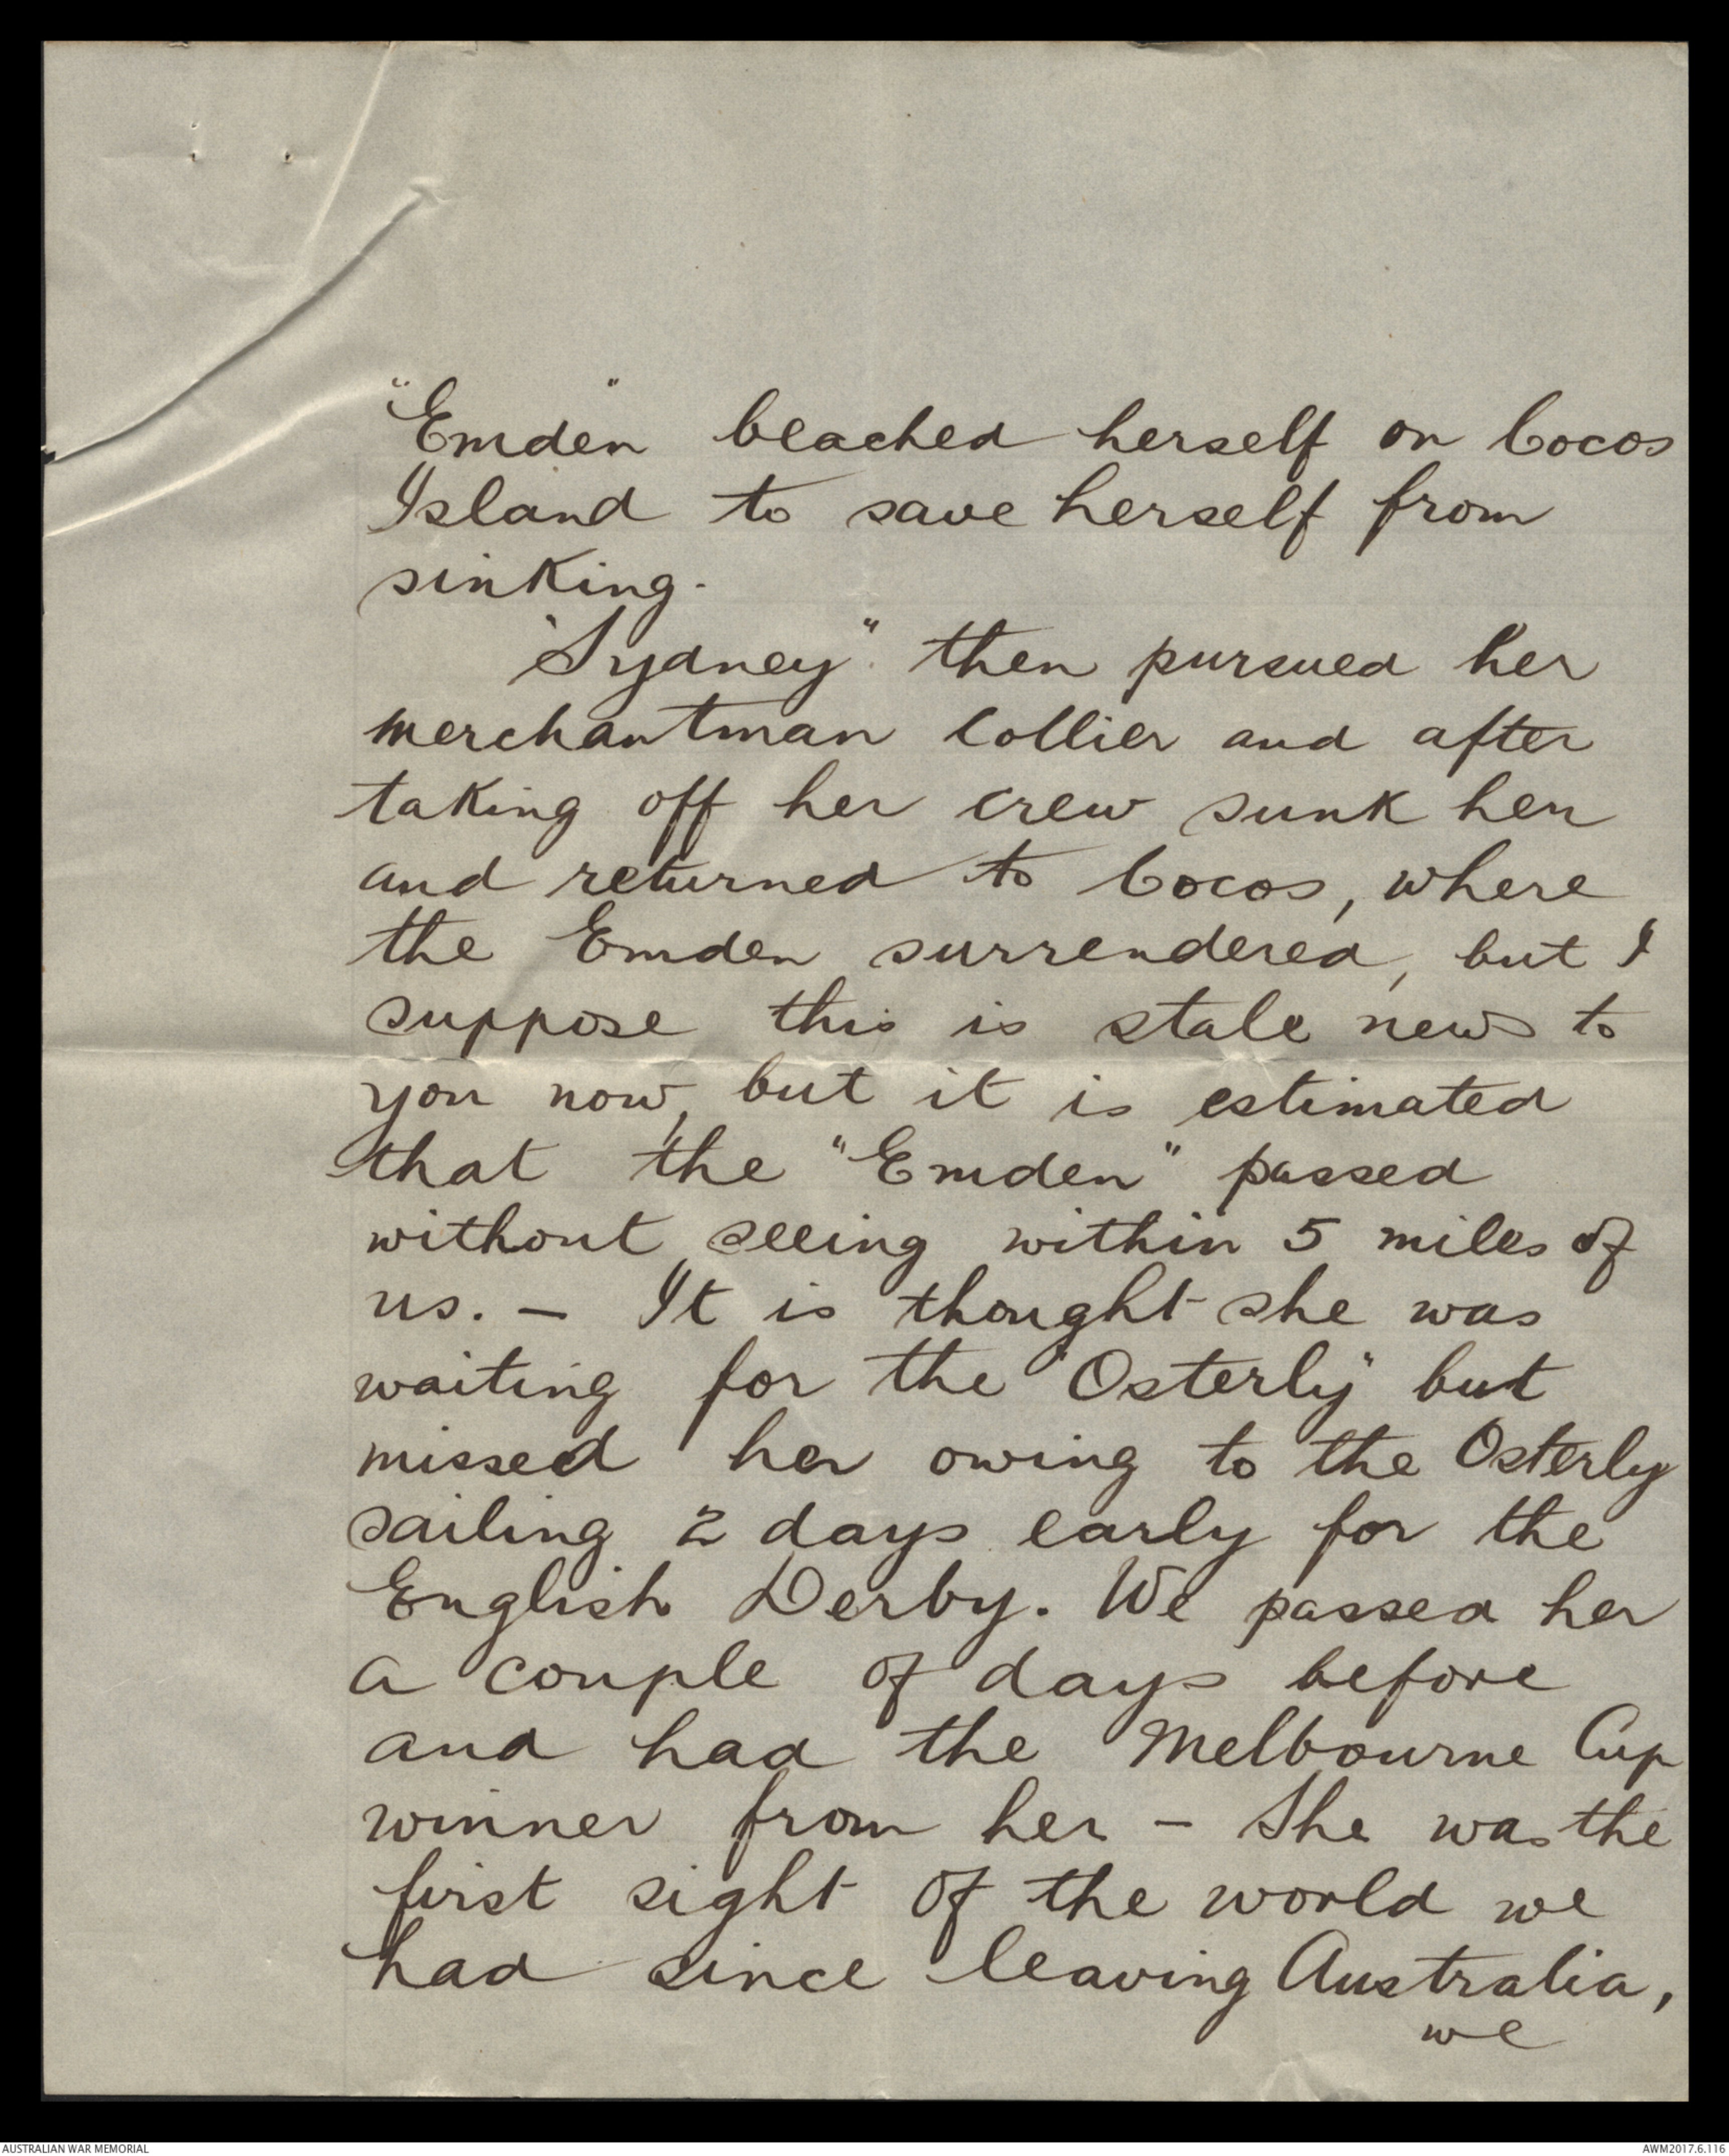 "Emden" beached herself on Cocos
Island to save herself from
sinking.
"Sydney" then pursued her
merchantman collier and after
taking off her crew sunk her
and returned to Cocos, where
the Emden surrendered, but I
suppose this is stale news to
you now, but it is estimated
that the "Emden" passed
without seeing within 5 miles of
us. — It is thought she was
waiting for the "Osterly" but
missed her owing to the Osterly
sailing 2 days early for the
English Derby. We passed her
a couple of days before
and had the Melbourne Cup
winner from her — She was the
first sight of the world we
had since leaving Australia,
we
AUSTRALIAN WAR MEMORIAL
AWM2017.6.116